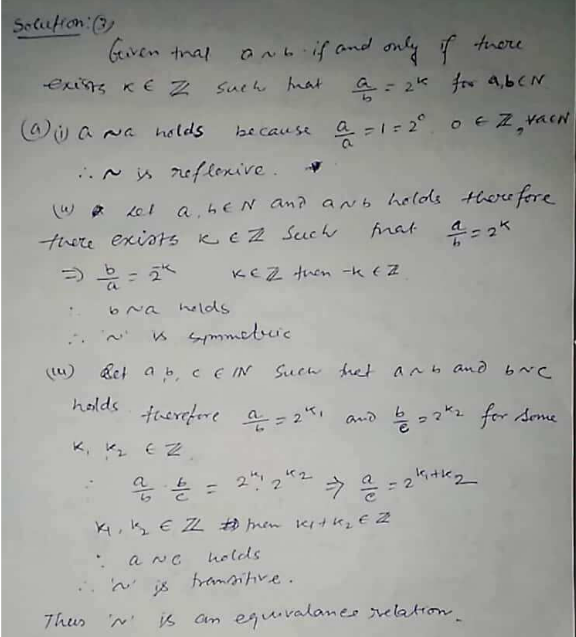 Solution: (3)
Given that a ~ b if and only if there
exists K ∈ Z such that a/b = 2^k for a, b ∈ N
(a) i) a ~ a holds because a/a = 1 = 2^0 0 ∈ Z, ∀ a ∈ N
∴ ~ is reflexive.
(ii) Let a, b ∈ N and a ~ b holds therefore
there exists k ∈ Z such that a/b = 2^k
⇒ b/a = 2^-k k ∈ Z then -k ∈ Z
∴ b ~ a holds
∴ '~' is symmetric
(iii) Let a, b, c ∈ IN such that a ~ b and b ~ c
holds therefore a/b = 2^k1 and b/c = 2^k2 for some
K1, K2 ∈ Z
∴ a/b · b/c = 2^k1 · 2^k2 ⇒ a/c = 2^k1+k2
K1, K2 ∈ Z then k1 + k2 ∈ Z
∴ a ~ c holds
∴ '~' is transitive.
Thus '~' is an equivalance relation.